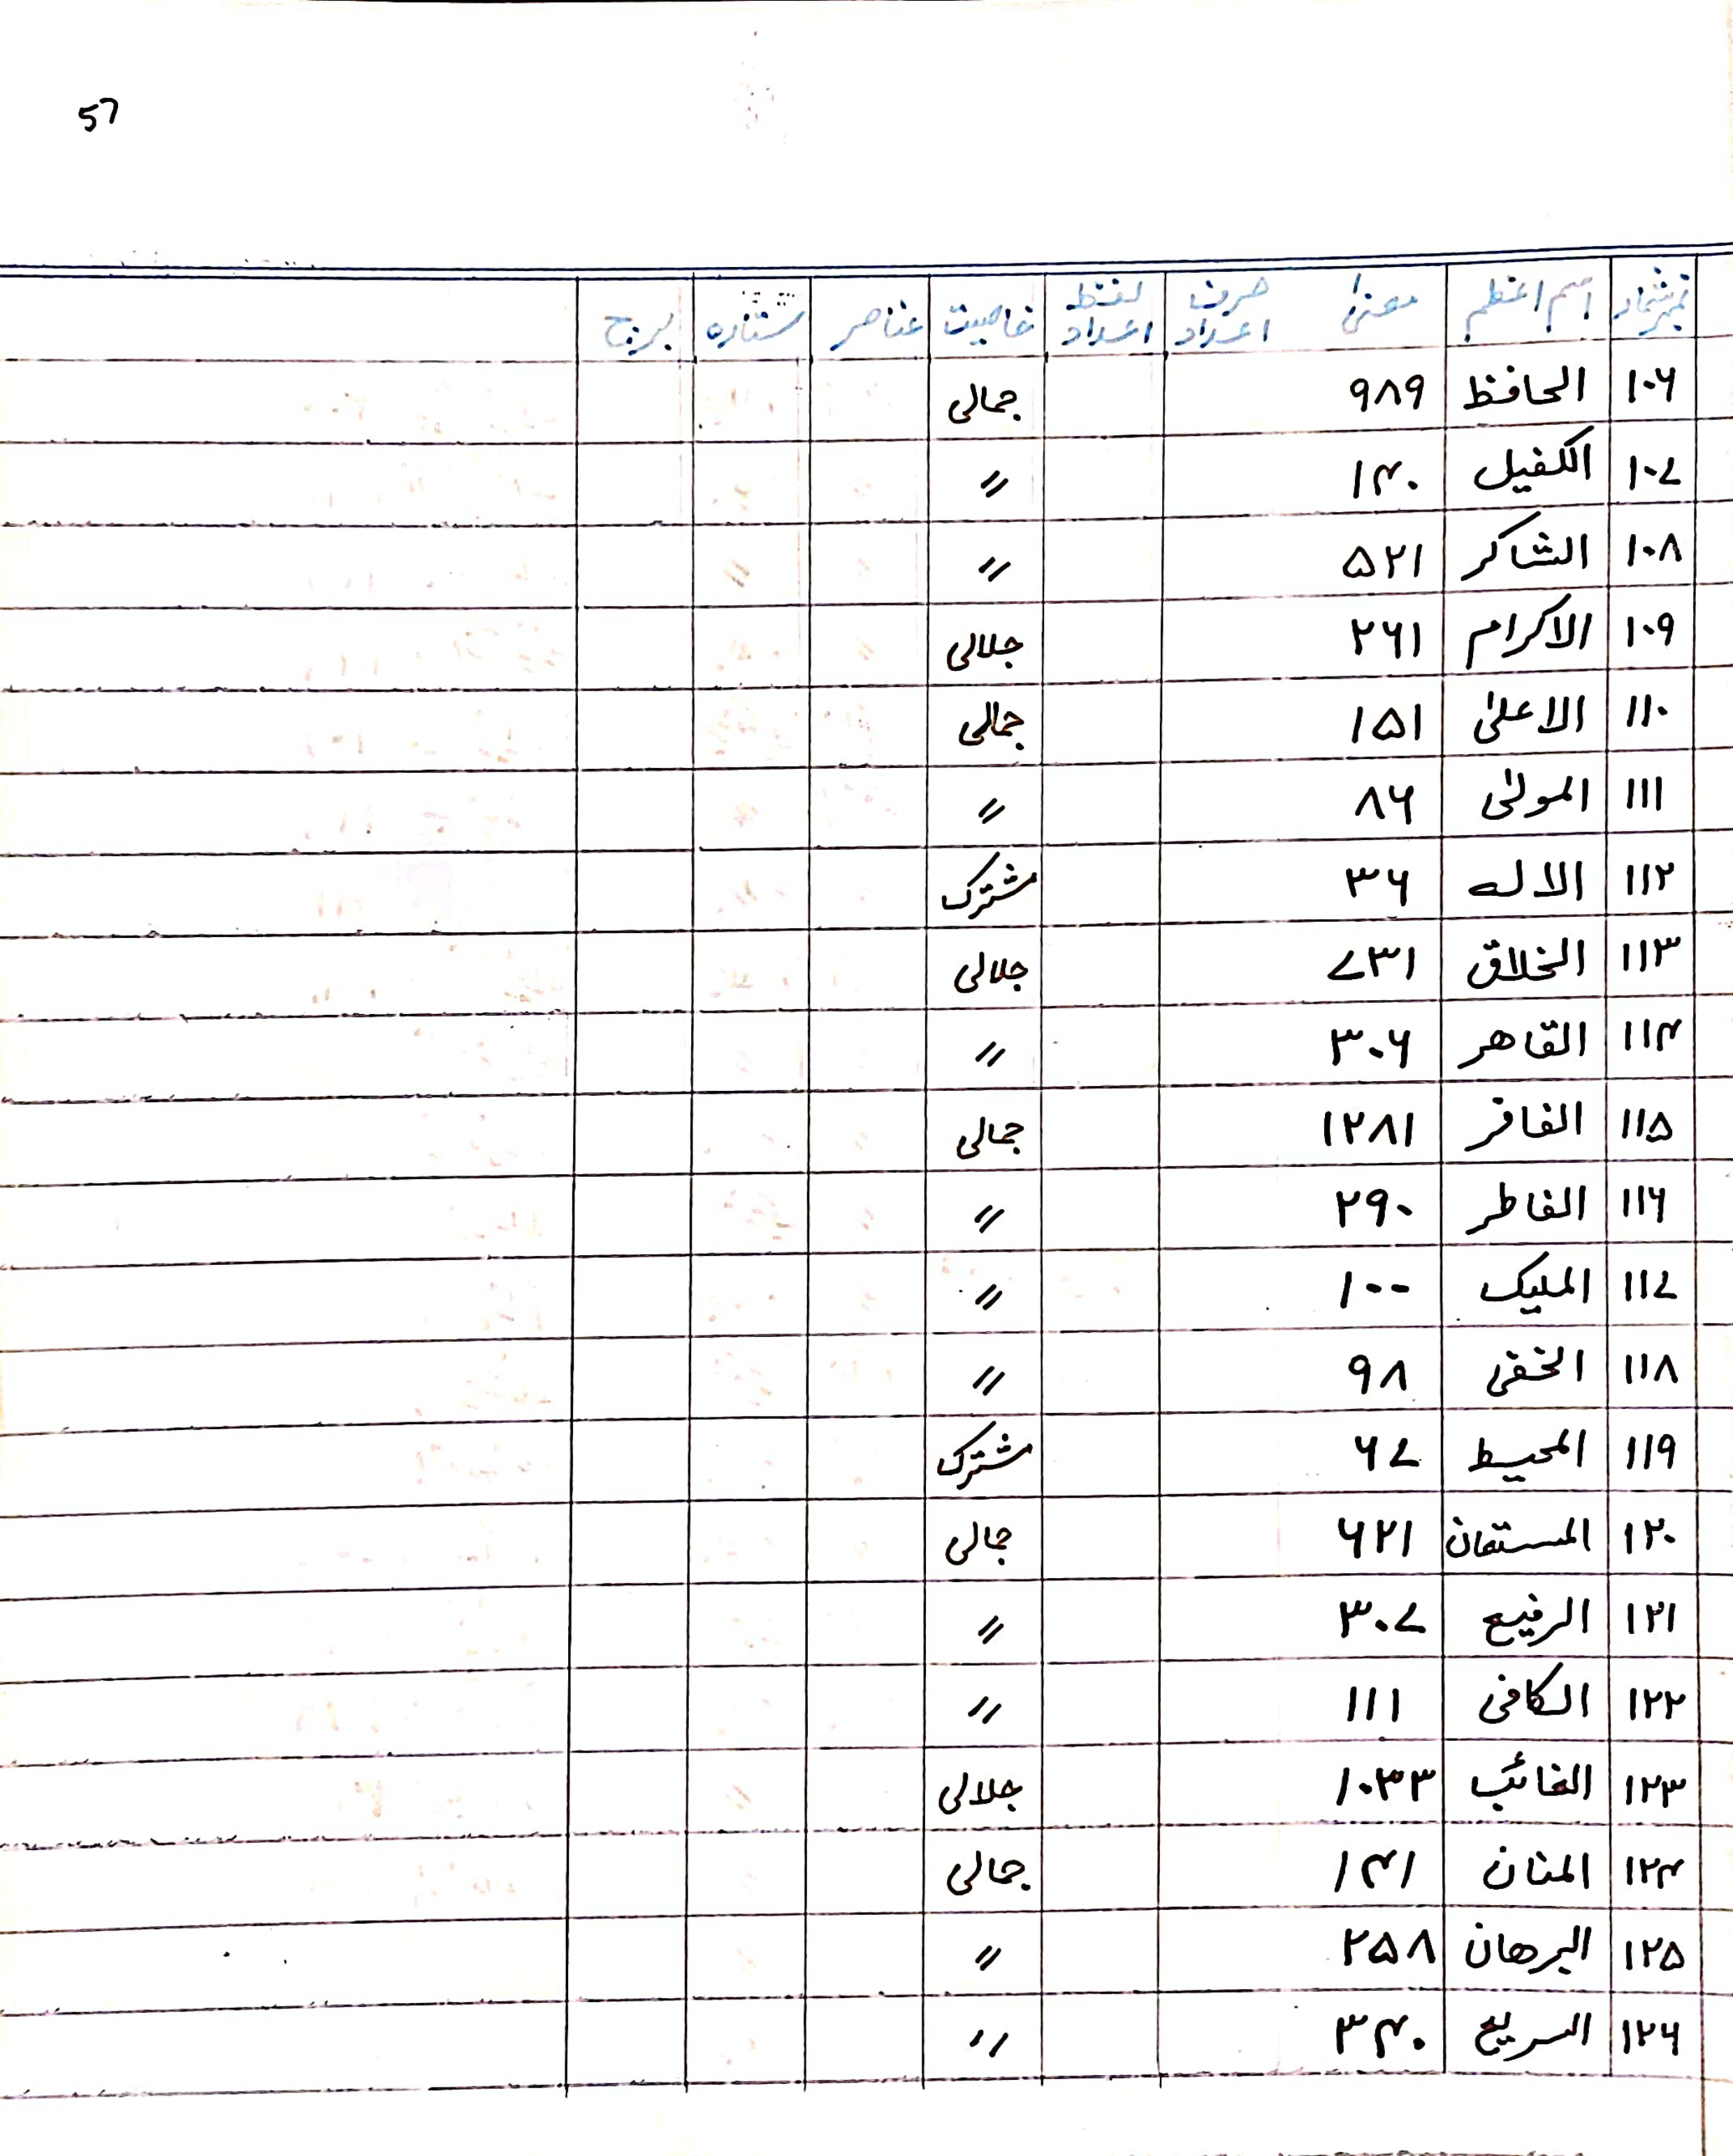 57
نمبرشمار اسم اعظم معنیٰ حروف اعداد لفظ اعداد خاصیت عناصر ستاره برج
۱۰۶ الحافظ ۹۸۹ جمالی
۱۰۷ الکفیل ۱۴۰〃
۱۰۸ الشاکر ۵۲۱ 〃
۱۰۹ الاکرام ۲۶۱ جلالی
۱۱۰ الاعلیٰ ۱۵۱ جمالی
۱۱۱ المولیٰ ۸۶ 〃
۱۱۲ الالہ ۳۶ مشترک
۱۱۳ الخلاق ۷۳۱ جلالی
۱۱۴ القاهر ۳۰۶ 〃
۱۱۵ الغافر ۱۲۸۱ جمالی
۱۱۶ الفاطر ۲۹۰ 〃
۱۱۷ الملیک ۱۰۰ 〃
۱۱۸ الخفی ۹۸ 〃
۱۱۹ المحیط ۶۷ مشترک
۱۲۰ المستعان ۶۲۱ جمالی
۱۲۱ الرفیع ۳۰۷ 〃
۱۲۲ الکافی ۱۱۱ 〃
۱۲۳ الغائب ۱۰۳۳ جلالی
۱۲۴ المنان ۱۴۱ جمالی
۱۲۵ البرهان ۲۵۸ 〃
۱۲۶ السریع ۳۴۰ 〃